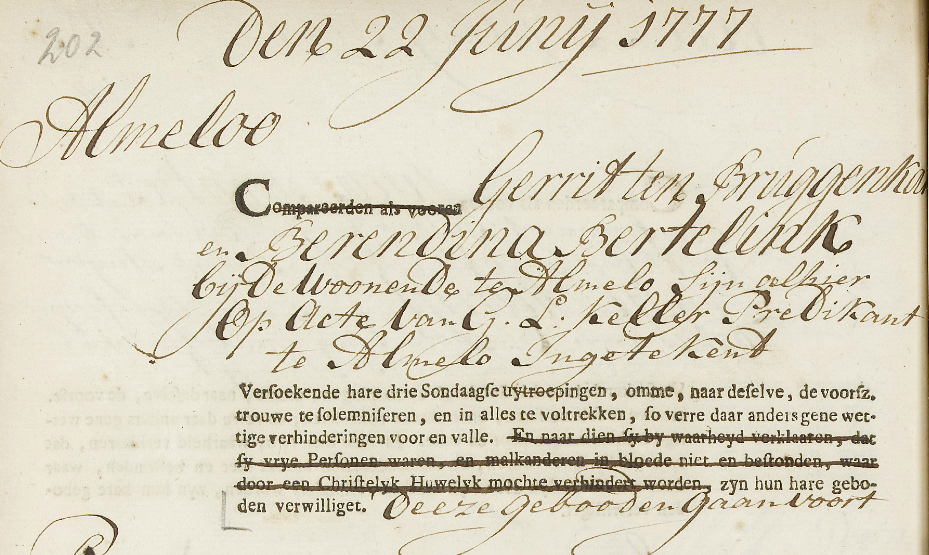 202
Den 22 Junij 1777
Almeloo
Gerrit ten Bruggenka
Compareerden als vooren
en Berendina Bertelink
bijde woonende te Almelo sijn alhier
op Acte van G. L. Keller Predikant
te Almelo Ingetekent
Versoekende hare drie Sondaagse uytroepingen, omme, naar deselve, de voorsz.
trouwe te solemniseren, en in alles te voltrekken, so verre daar anders gene wet-
tige verhinderingen voor en valle. En naar dien sy by waarheyd verklaaren, dat
sy vrye Personen waren, en malkanderen in bloede niet en bestonden, waar
door een Christelyk Huwelyk mochte verhindert worden, zyn hun hare gebo-
den verwilliget. Deeze Gebooden Gaan voort